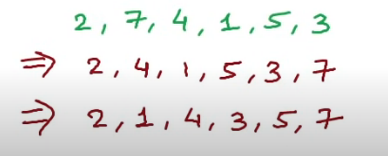 2, 7, 4, 1, 5, 3
⇒ 2, 4, 1, 5, 3, 7
⇒ 2, 1, 4, 3, 5, 7